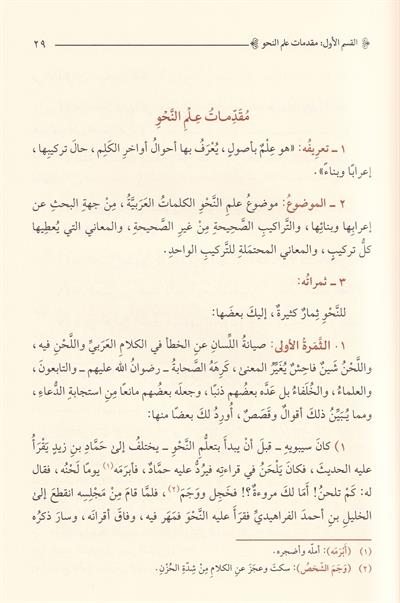 القسم الأول: مقدمات علم النحو ٢٩
مُقَدِّماتُ عِلْمِ النَّحْوِ
١ ـ تعرِيفُه: «هو عِلْمٌ بأصولٍ، يُعْرَفُ بها أحوالُ أواخرِ الكَلِمِ، حالَ تركيبِها،
إعرابًا وبناءً».
٢ ـ الموضوعُ: موضوعُ علمِ النَّحْوِ الكلماتُ العَرَبيَّةُ، مِنْ جهةِ البحثِ عن
إعرابِها وبنائِها، والتَّراكيبِ الصَّحيحةِ مِنْ غيرِ الصَّحيحةِ، والمعاني التي يُعطِيها
كلُّ تركيبٍ، والمعاني المحتمَلةِ للتَّركيبِ الواحدِ.
٣ ـ ثمراتُه:
للنَّحْوِ ثِمارٌ كثيرةٌ، إليكَ بعضَها:
١. الثَّمرةُ الأولى: صيانةُ اللِّسانِ عنِ الخطأ في الكلامِ العَرَبيِّ واللَّحْنِ فيه،
واللَّحْنُ شَينٌ فاحِشٌ يُغَيِّرُ المعنى، كَرِهَهُ الصَّحابةُ ـ رضوانُ الله عليهم ـ والتابعونَ،
والعلماءُ، والخُلَفاءُ بل عَدَّه بعضُهم ذنبا، وجعلَه بعضُهم مانعا مِنِ استجابةِ الدُّعاءِ،
ومما يُبَيِّنُ ذلكَ أقوالٌ وقَصَصٌ، أُورِدُ لكَ بعضًا منها:
١) كانَ سيبويهِ ـ قبلَ أنْ يبدأَ بتعلُّمِ النَّحْوِ ـ يختلفُ إلى حَمَّادِ بنِ زيدٍ يَقْرَأُ
عليه الحديثَ، فكانَ يَلْحَنُ في قراءتِه فيرُدُّ عليه حمَّادٌ، فأبرَمَه(١) يومًا لَحْنُه، فقال
له: كَمْ تلحنُ! أمَا لكَ مروءةٌ؟! فخَجِل ووَجَمَ(٢)، فلمَّا قامَ مِنْ مَجْلِسِه انقطعَ إلى
الخليلِ بنِ أحمدَ الفراهيديِّ فقرَأَ عليه النَّحْوَ فمَهَر فيه، وفاقَ أقرانَه، وسارَ ذكرُه
(١) (أَبْرَمَه): أملَّه وأضجره.
(٢) (وَجَمَ الشَّخصُ): سكتَ وعجَز عنِ الكلامِ مِنْ شِدَّةِ الحُزْنِ.